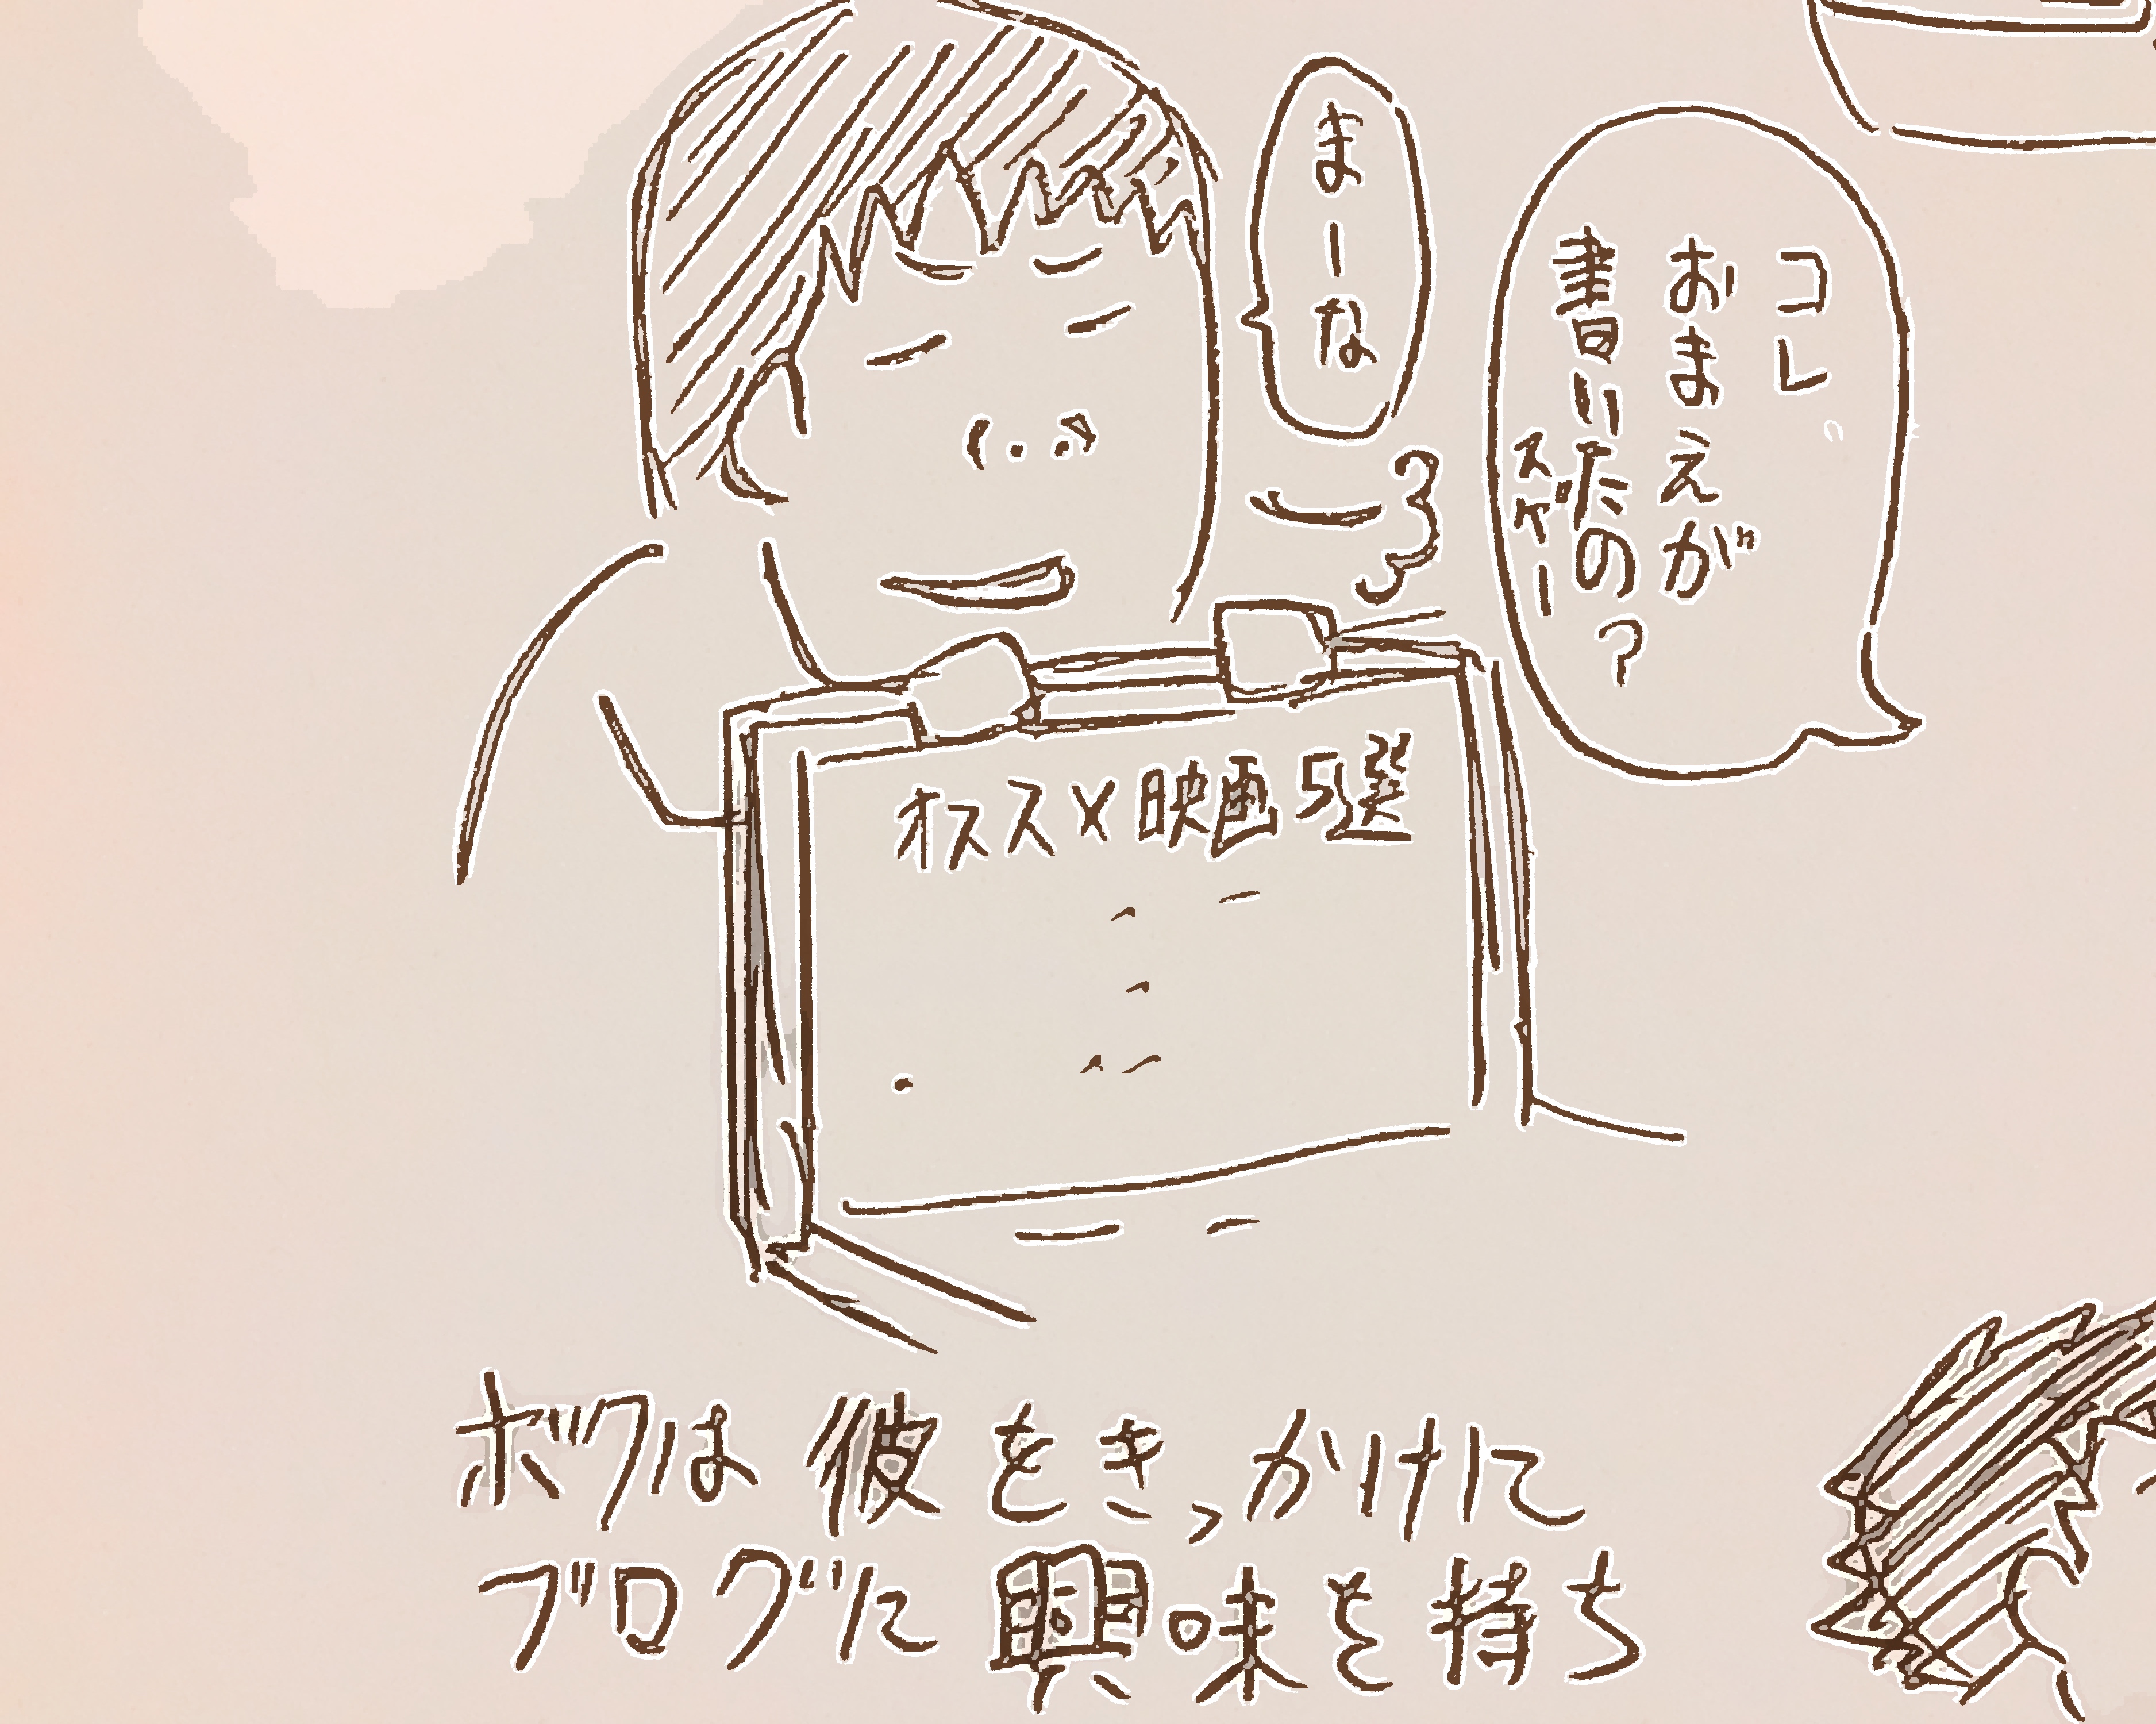 コレ
おまえが
書いたの?
スゲー
まーな
オススメ映画5選
ボクは彼をきっかけに
ブログに興味を持ち